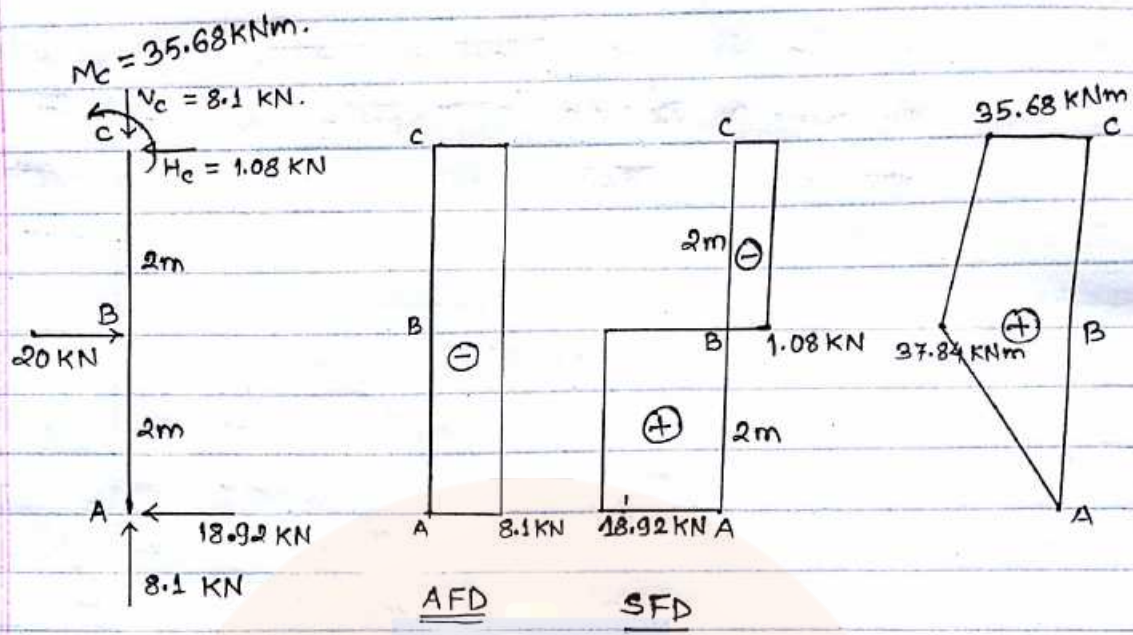 Mc = 35.68 KNm.
Vc = 8.1 KN.
C
Hc = 1.08 KN
2m
B
20 KN
2m
A
18.92 KN
8.1 KN
C
B
−
A
8.1 KN
AFD
C
2m
−
B
1.08 KN
+
2m
18.92 KN
A
SFD
35.68 KNm
C
37.84 KNm
+
B
A